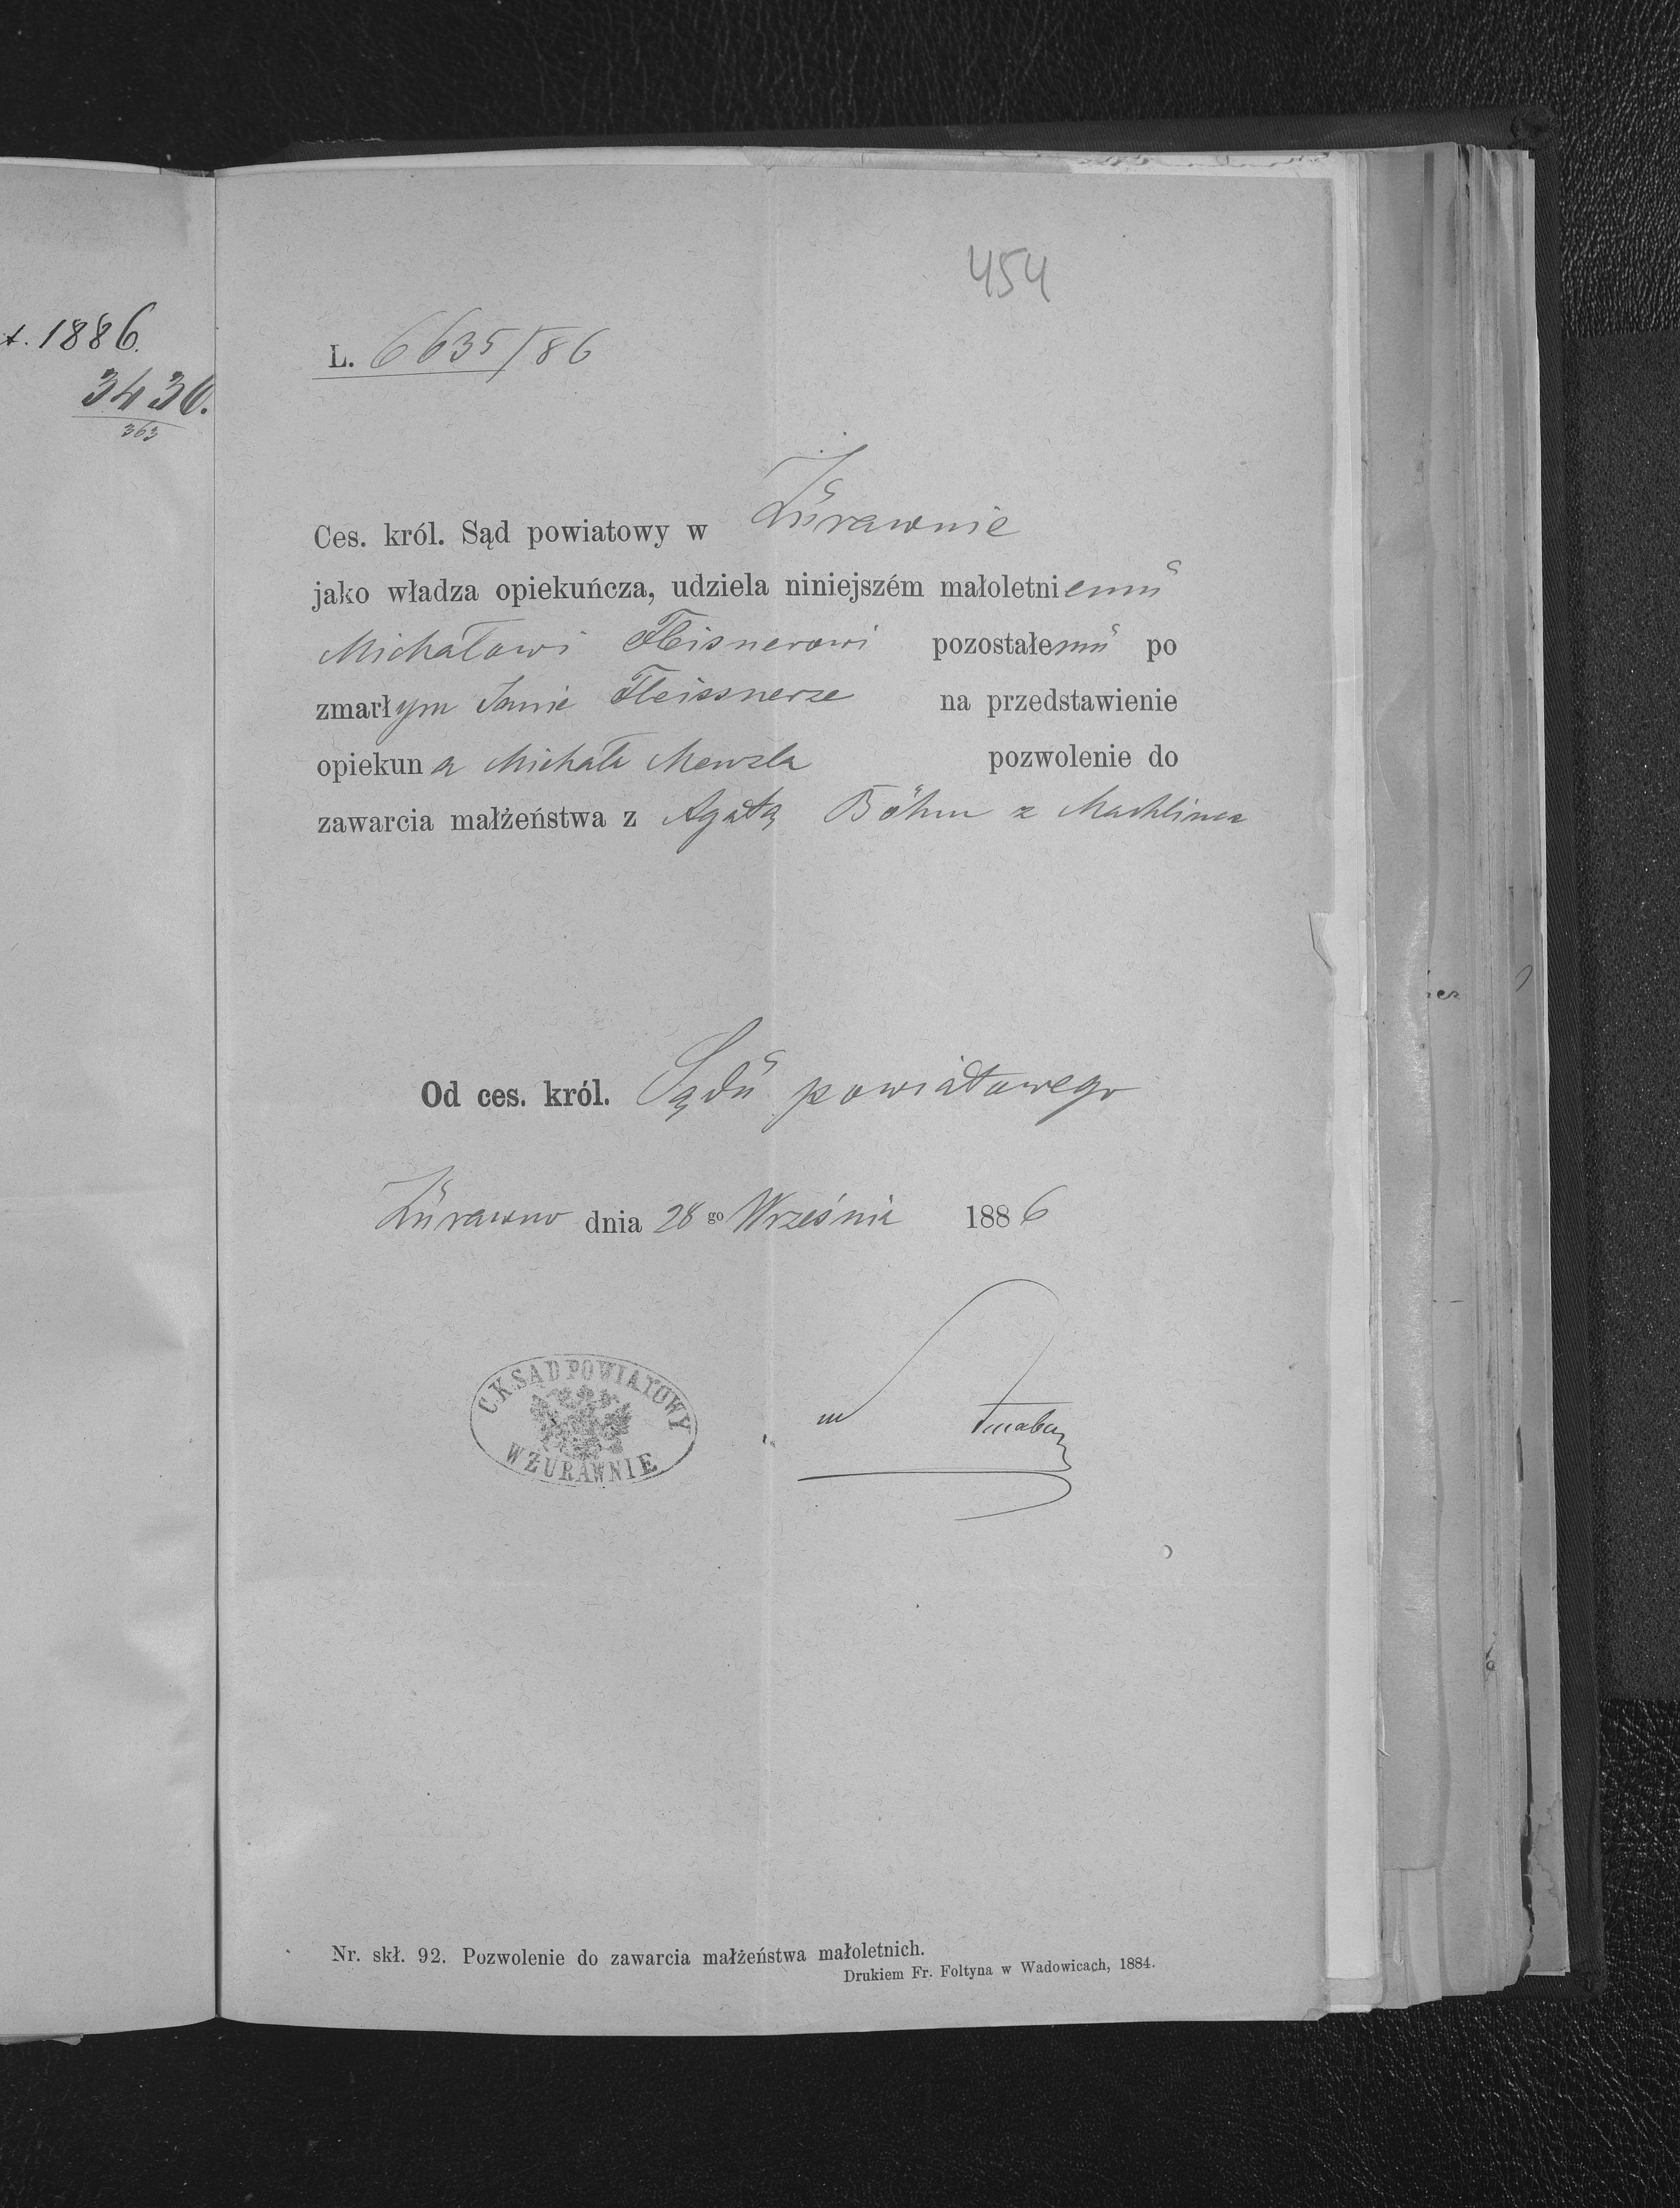 t. 1886.
3430.
363
454
L. 6635/86
Ces. król. Sąd powiatowy w Żurawnie
jako władza opiekuńcza, udziela niniejszém małoletniemu
Michałowi Fleisnerowi pozostałemu po
zmarłym Janie Fleissnerze na przedstawienie
opiekuna Michała Menzla pozwolenie do
zawarcia małżeństwa z Agatą Böhm z Machlińca
Od ces. król. Sądu powiatowego
Żurawno dnia 28 go Września 1886
C.K. SĄD POWIATOWY
W ŻURAWNIE
Nr. skł. 92. Pozwolenie do zawarcia małżeństwa małoletnich.
Drukiem Fr. Foltyna w Wadowicach, 1884.